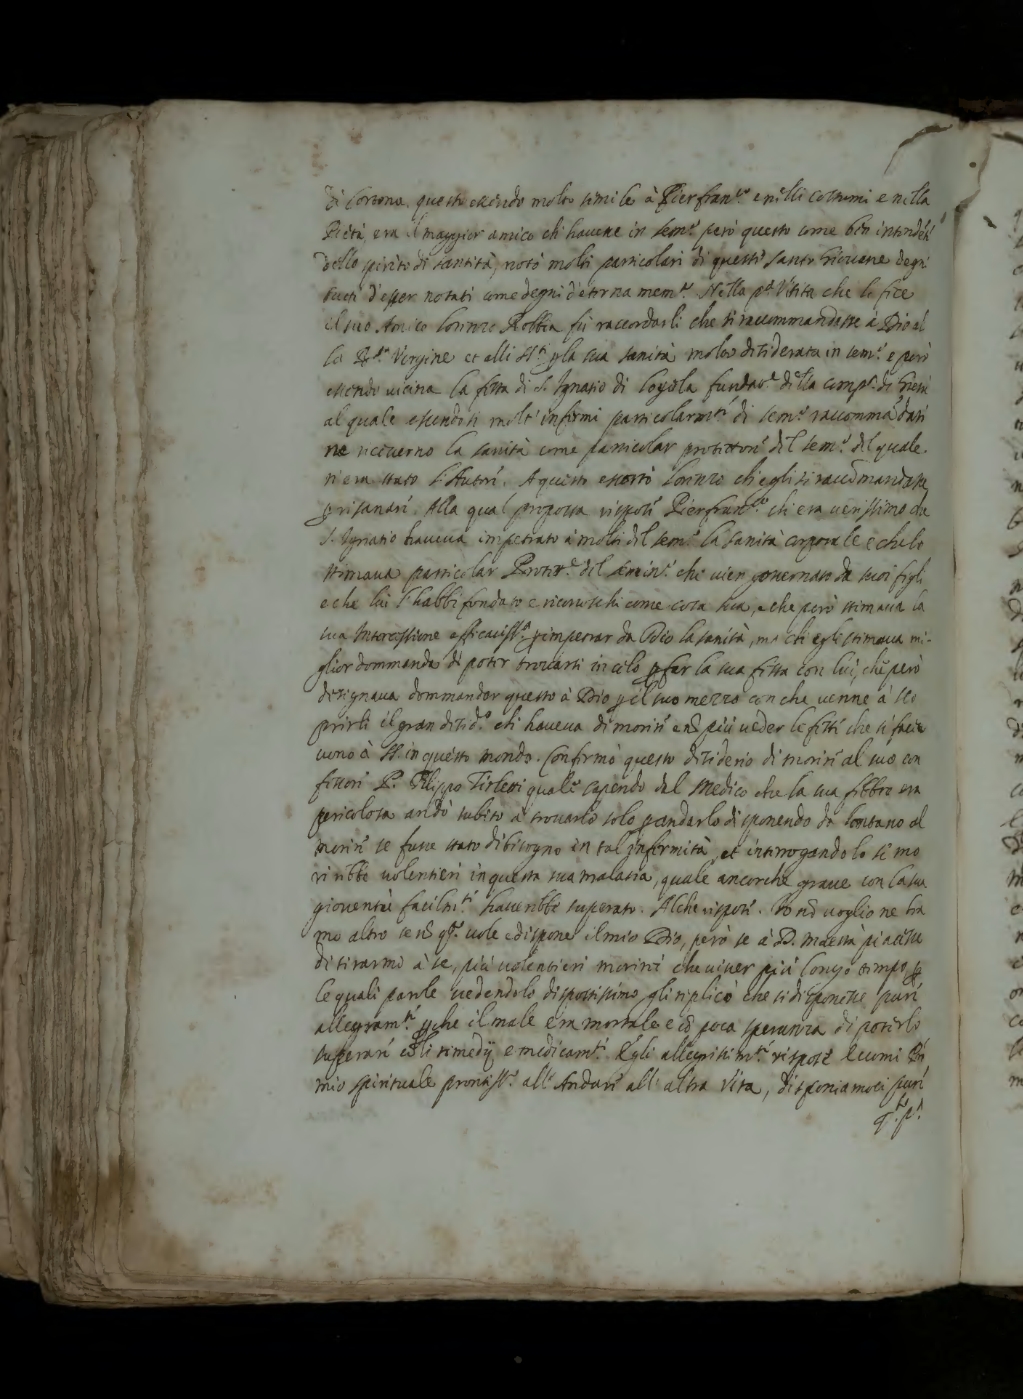 di Cortona. questo essendo molto simile à Pierfran.co e nelli costumi e nella
Pietà, era il maggior amico che havesse in sem.o però questo come ben intendé
dello spirito di santità, notò molti particolari di questo santo Giovane degni
tutti d'esser notati come degni d'eterna mem.a. Nella p.a Visita che li fece
il suo Amico Lorenzo Robbia fù raccordarli che si raccommandasse à Dio al
la B.ma Vergine et alli S.ti p la sua sanità molto desiderata in sem.o e però
essendo vicina la festa di S. Ignatio di Loyola fundat.e della comp.a di Giesù
al quale essendosi molti infermi particolarm.te di sem.o raccommãdati
ne riceverno la sanità come particolar protettore del sem.o del quale
n'era stato l'Autore. A questo essortò Lorenzo ch'egli si raccõmandasse
p risanare. Alla qual proposta rispose Pierfran.co che era verissimo che
S. Ignatio haveva impetrato à molti del sem.o la sanità corporale e che lo
stimava particolar Protet.e del semin.o che vien governato da suoi figli
e che lui l'habbi fondato e riconoschi come cosa sua, e che però stimava la
sua Intercessione efficaciss.a p impetrar da Dio la sanità, ma che egli stimava mi-
glior dommanda di poter trovarsi in cielo p far la sua festa con lui, che però
designava dommandar questo à Dio p il suo mezzo con che venne à sco
prirli il gran desid.o che haveva di morire e nõ più veder le feste che si face
vono à S.ti in questo mondo. Confermò questo desiderio di morire al suo con
fessore P. Filippo quale sapendo dal Medico che la sua febbre era
pericolosa andò subito à trovarlo solo p andarlo disponendo da lontano al
morire se fusse stato di bisogno in tal infermità, et interrogandolo se mo
rirebbe volentieri in questa sua malatia, quale ancorche grave con la sua
gioventù facilm.te haverebbe superato. Al che rispose. Io nõ voglio ne bra
mo altro se nõ q.to vole e dispone il mio Dio, però se à D. maestà piacesse
di tirarmi à se, più volentieri morirei che viver più longo tempo p
le quali parole vedendolo dispostissimo, gli replicò che si disponesse pure
allegram.te p che il male era mortale e cõ poca speranza di poterlo
superare cõ li rimedij e medicam.ti. Egli allegrissim.te rispose Eccomi P.re
mio spirituale prontiss.o all'Andare all'altra Vita, disponiamoci pure